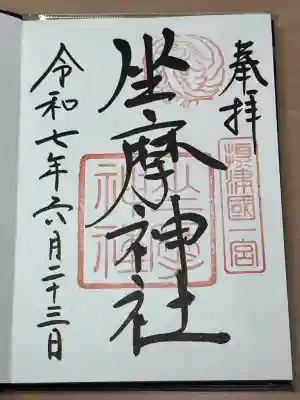 奉拝
摂津國一宮
坐摩神社
令和七年六月二十三日